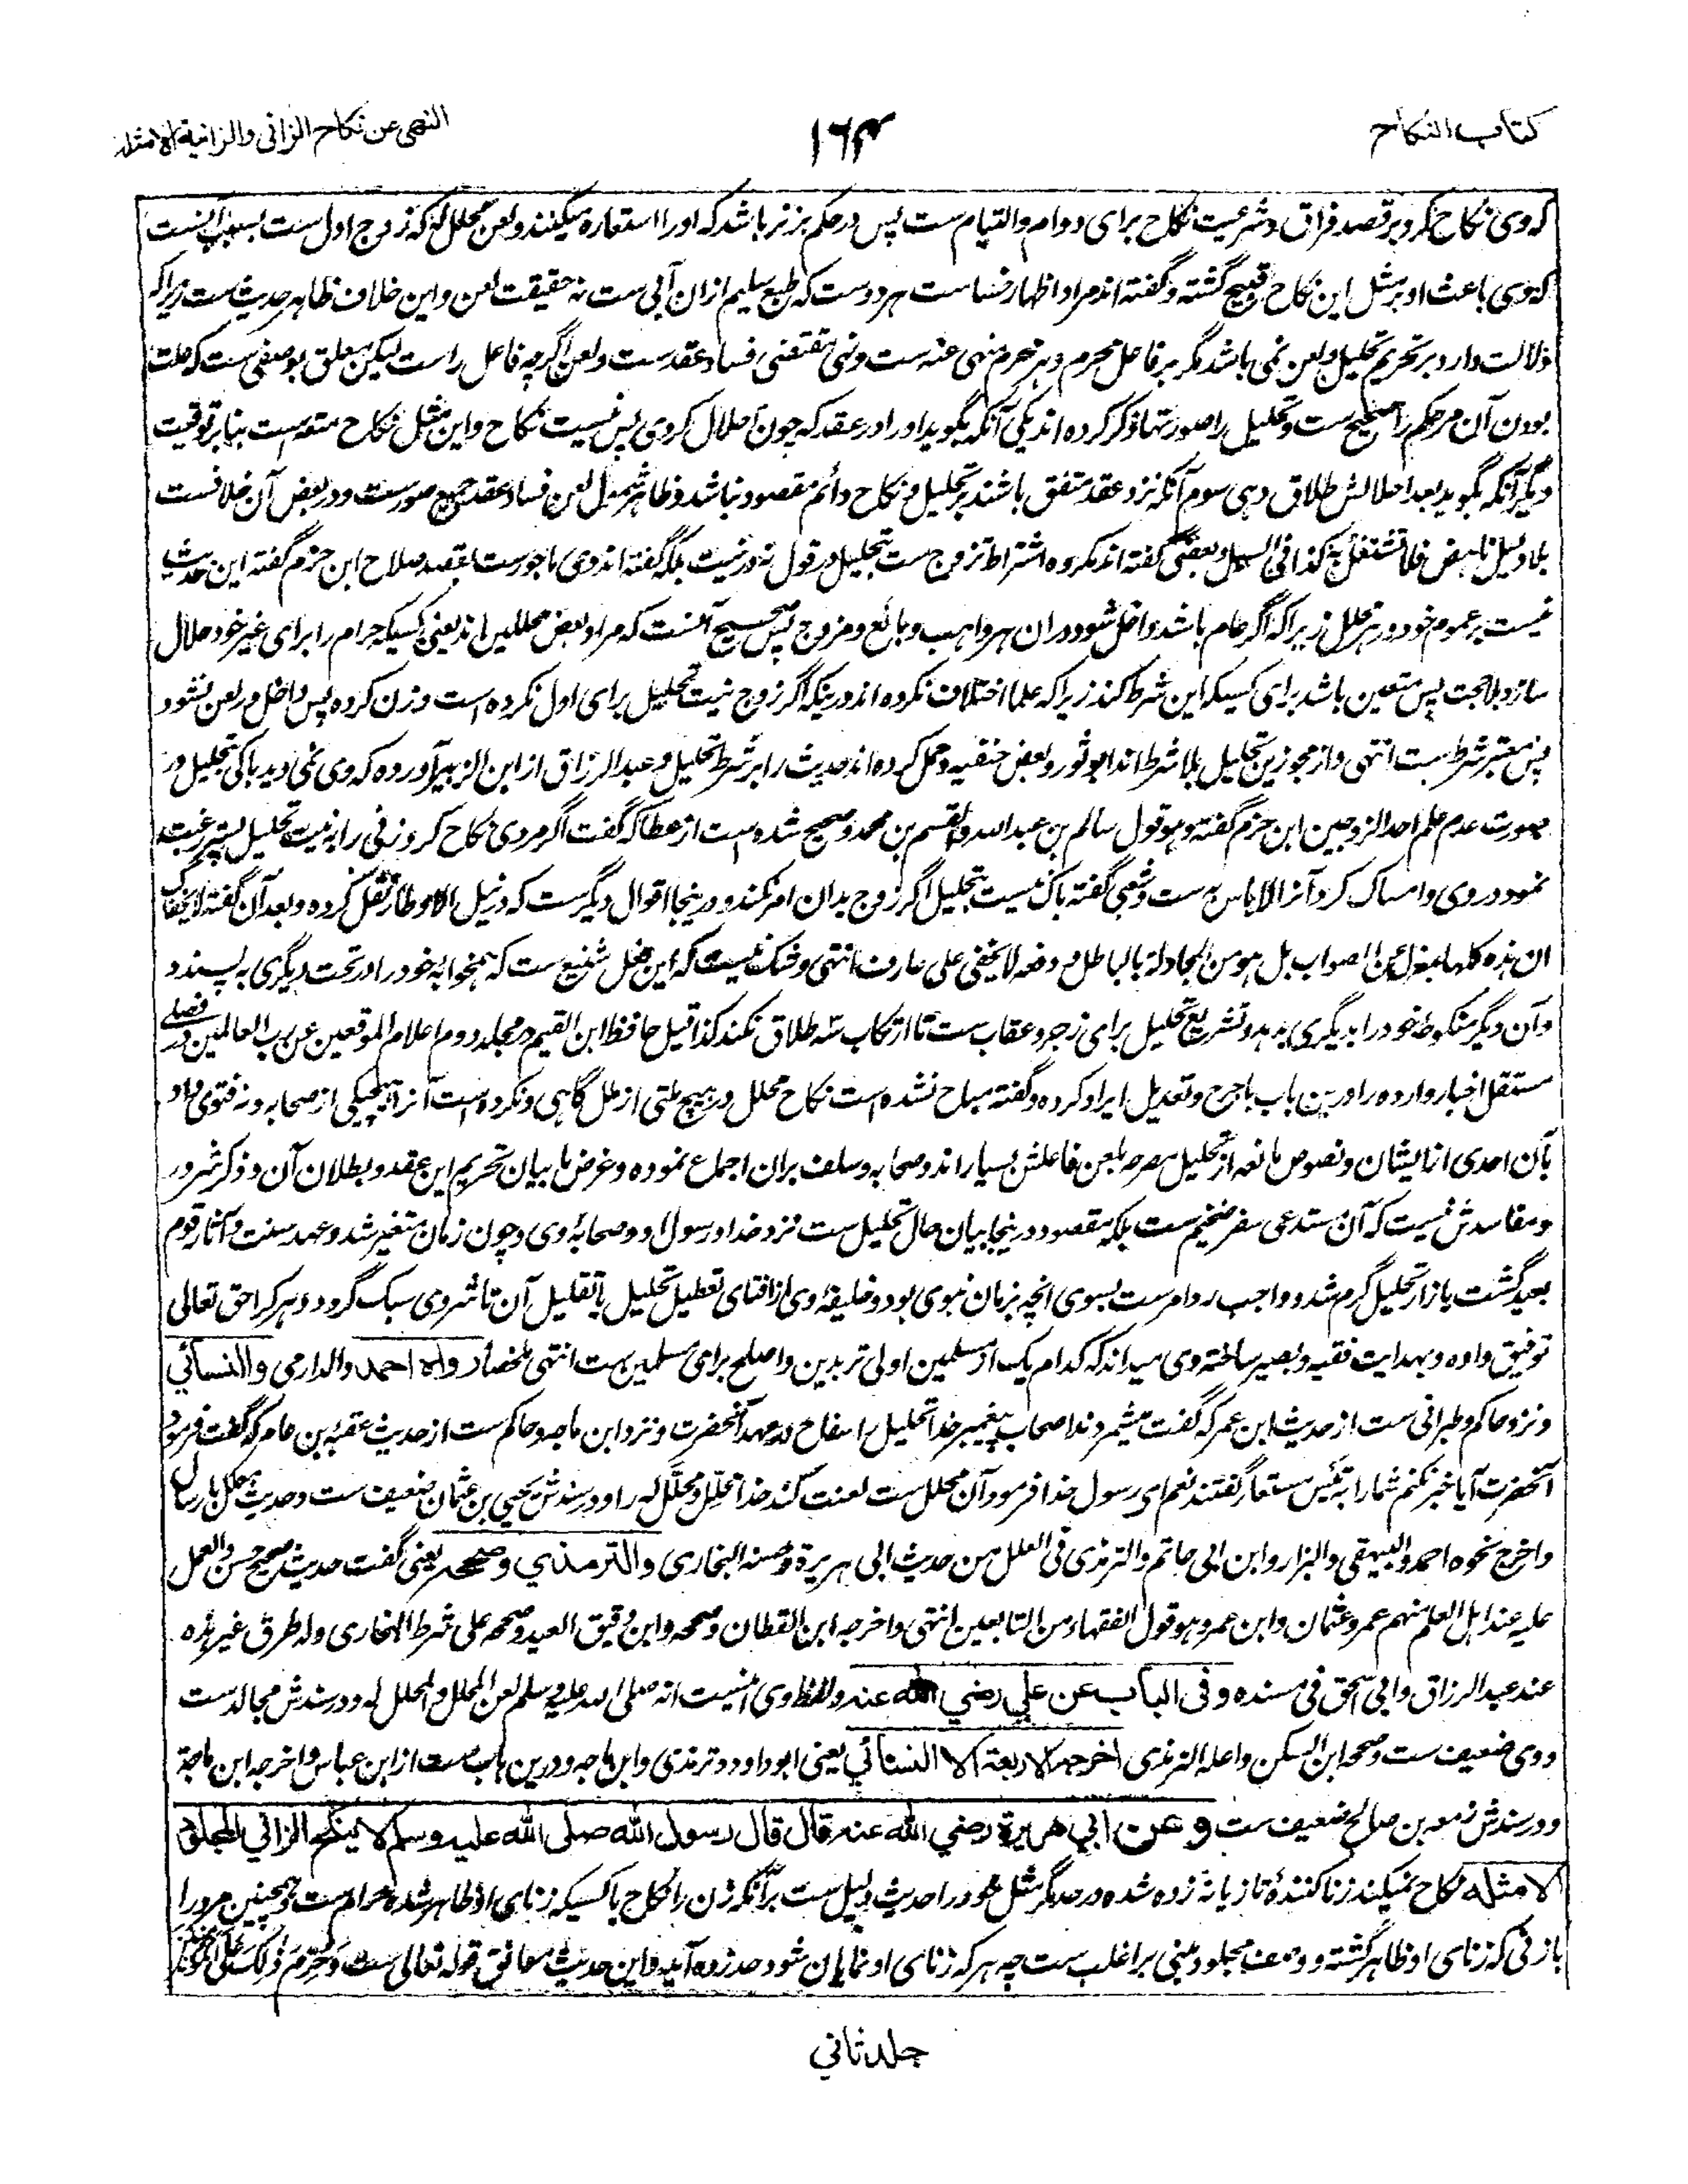 كتاب النكاح
۱۶۴
النهى عن نكاح الزانى والزانية الا مثله
که وی نکاح کرد بر قصد فراق و شرعیت نکاح برای دوام والتیام ست پس در حکم بز نر باشد که او را استعاره میکنند و لعن محلل له که زوج اول ست بسبب آنست
که وی باعث او بر مثل این نکاح قبیح گشته و گفته اند مراد اظهار خساست هر دوست که طبع سلیم ازان آبی ست نه حقیقت لعن و این خلاف ظاهر حدیث ست زیراکه
دلالت دارد بر تحریم تحلیل و لعن نمی باشد مگر بر فاعل محرم و هر محرم منهی عنه ست و نهی مقتضی فساد عقدست و لعن اگرچه فاعل راست لیکن معلق بوصفی ست که علت
بودن آن مر حکم را صحیح ست و تحلیل را صورتها ذکر کرده اند یکی آنکه بگوید او را در عقد که چون احلال کردی پس نیست نکاح و این مثل نکاح متعه است بنا بر توقیت
دیگر آنکه بگوید بعد احلالش طلاق دهی سوم آنکه نزد عقد متفق باشند بر تحلیل و نکاح دائم مقصود نباشد و ظاهر شمول لعن فساد عقد جمیع صورست و در بعض آن خلافست
بلا دلیل ناهض فلا تشتغل به کذا فی السبل و بعضی گفته اند مکروه اشتراط تزوج ست بتحلیل در قول نه در نیت بلکه گفته اند وی ماجورست بقصد صلاح ابن حزم گفته این حدیث
نیست بر عموم خود در هر محلل زیرا که اگر عام باشد داخل شود دران هر واهب و بائع و مزوج پس صحیح آنست که مراد بعض محللین اند یعنی کسیکه حرام را برای غیر خود حلال
سازد بلا حجت پس متعین باشد برای کسیکه این شرط کند زیرا که علما اختلاف نکرده اند درینکه اگر زوج نیت تحلیل برای اول نکرده است و زن کرده پس داخل در لعن نشود
پس معتبر شرط ست انتهی و از مجوزین تحلیل بلا شرط اند ابو ثور و بعض حنفیه و حمل کرده اند حدیث را بر شرط تحلیل و عبد الرزاق از ابن الزبیر آورده که وی نمی دید باکی بتحلیل در
صورت عدم علم احد الزوجین ابن حزم گفته و هو قول سالم بن عبد الله والقسم بن محمد و صحیح شده است از عطا که گفت اگر مردی نکاح کرد زنی را به نیت تحلیل پستر رغبت
نمود در وی و امساک کرد آنرا لا باس به ست و شعبی گفته باک نیست بتحلیل اگر زوج بدان امر نکند و درینجا اقوال دیگرست که در نیل الاوطار نقل کرده و بعد آن گفته لا یخفاک
ان هذه کلها بمعزل من الصواب بل هو من المجادلة بالباطل و دفعه لا یخفی علی عارف انتهی و شک نیست که این فعل شنیع ست که همخوابه خود را در تحت دیگری به پسندد
و آن دیگر منکوحه خود را بدیگری بدهد و تشریع تحلیل برای زجر و عقاب ست تا ارتکاب سه طلاق نکند کذا قیل حافظ ابن القیم در مجلد دوم اعلام الموقعین عن رب العالمین در فصلی
مستقل اخبار وارده را درین باب با جرح و تعدیل ایراد کرده و گفته مباح نشده است نکاح محلل در هیچ ملتی از ملل گاهی و نکرده است آنرا هیچیکی از صحابه و نه فتوی داد
بآن احدی از ایشان و نصوص مانعه از تحلیل مصرحه بلعن فاعلش بسیار اند و صحابه و سلف بران اجماع نموده و غرض ما بیان تحریم این عقد و بطلان آن و ذکر شرور
و مفاسدش نیست که آن مستدعی سفر ضخیم ست بلکه مقصود درینجا بیان حال تحلیل ست نزد خدا و رسول او و صحابهٔ وی و چون زمان متغیر شد و عهد سنت و آثار قوم
بعید گشت بازار تحلیل گرم شد و واجب رد امرست بسوی آنچه بزمان نبوی بود و خلیفهٔ وی از افتای تعطیل تحلیل یا تقلیل آن تا شر وی سبک گردد و هر کرا حق تعالی
توفیق داده و بهدایت فقیه و بصیر ساخته وی میداند که کدام یک از مسلمین اولی تر بدین و اصلح برای مسلمین ست انتهی ملخصا رواه احمد والدارمی والنسائي
و نزد حاکم و طبرانی ست از حدیث ابن عمر که گفت میشمردند اصحاب پیغمبر خدا تحلیل را سفاح در عهد آنحضرت و نزد ابن ماجه و حاکم ست از حدیث عقبه بن عامر که گفت فرمود
آنحضرت آیا خبر نکنم شما را به تیس مستعار گفتند نعم ای رسول خدا فرمود آن محلل ست لعنت کند خدا محلِّل و محلَّل له را و در سندش یحیی بن عثمان ضعیف ست و حدیث معلل بارسال
واخرج نحوه احمد والبیهقی والبزار وابن ابی حاتم والترمذی فی العلل من حدیث ابی هریرة وحسنه البخاری والترمذي وصححه یعنی گفت حدیث صحیح حسن والعمل
علیه عند اهل العلم منهم عمر وعثمان وابن عمر وهو قول الفقهاء من التابعین انتهی واخرجه ابن القطان وصححه وابن دقیق العید وصححه علی شرط البخاری وله طرق غیر هذه
عند عبد الرزاق وابی اسحق فی مسنده وفى الباب عن علي رضي الله عنه ولفظ وی اینست انه صلی الله علیه وسلم لعن المحلل والمحلل له و در سندش مجالدست
و وی ضعیف ست وصححه ابن السکن واعله الترمذی اخرجه الاربعة الا النسائي یعنی ابو داود و ترمذی و ابن ماجه و درین باب ست از ابن عباس واخرجه ابن ماجة
و در سندش زمعه بن صالح ضعیف ست وعن ابي هريرة رضي الله عنه قال قال رسول الله صلى الله عليه وسلم لا ينكح الزاني المجلود
الا مثله نکاح نمیکند زنا کنندهٔ تازیانه زده شده در حد مگر مثل خود را حدیث دلیل ست برآنکه زن را نکاح با کسیکه زنای او ظاهر شده حرام ست و همچنین مرد را
با زنی که زنای او ظاهر گشته و وصف مجلود مبنی بر اغلب ست چه هر که زنای او نمایان شود حد زده آید و این حدیث موافق قوله تعالی ست وَحُرِّمَ ذٰلِكَ عَلَى الْمُؤْمِنِينَ
جلد ثاني